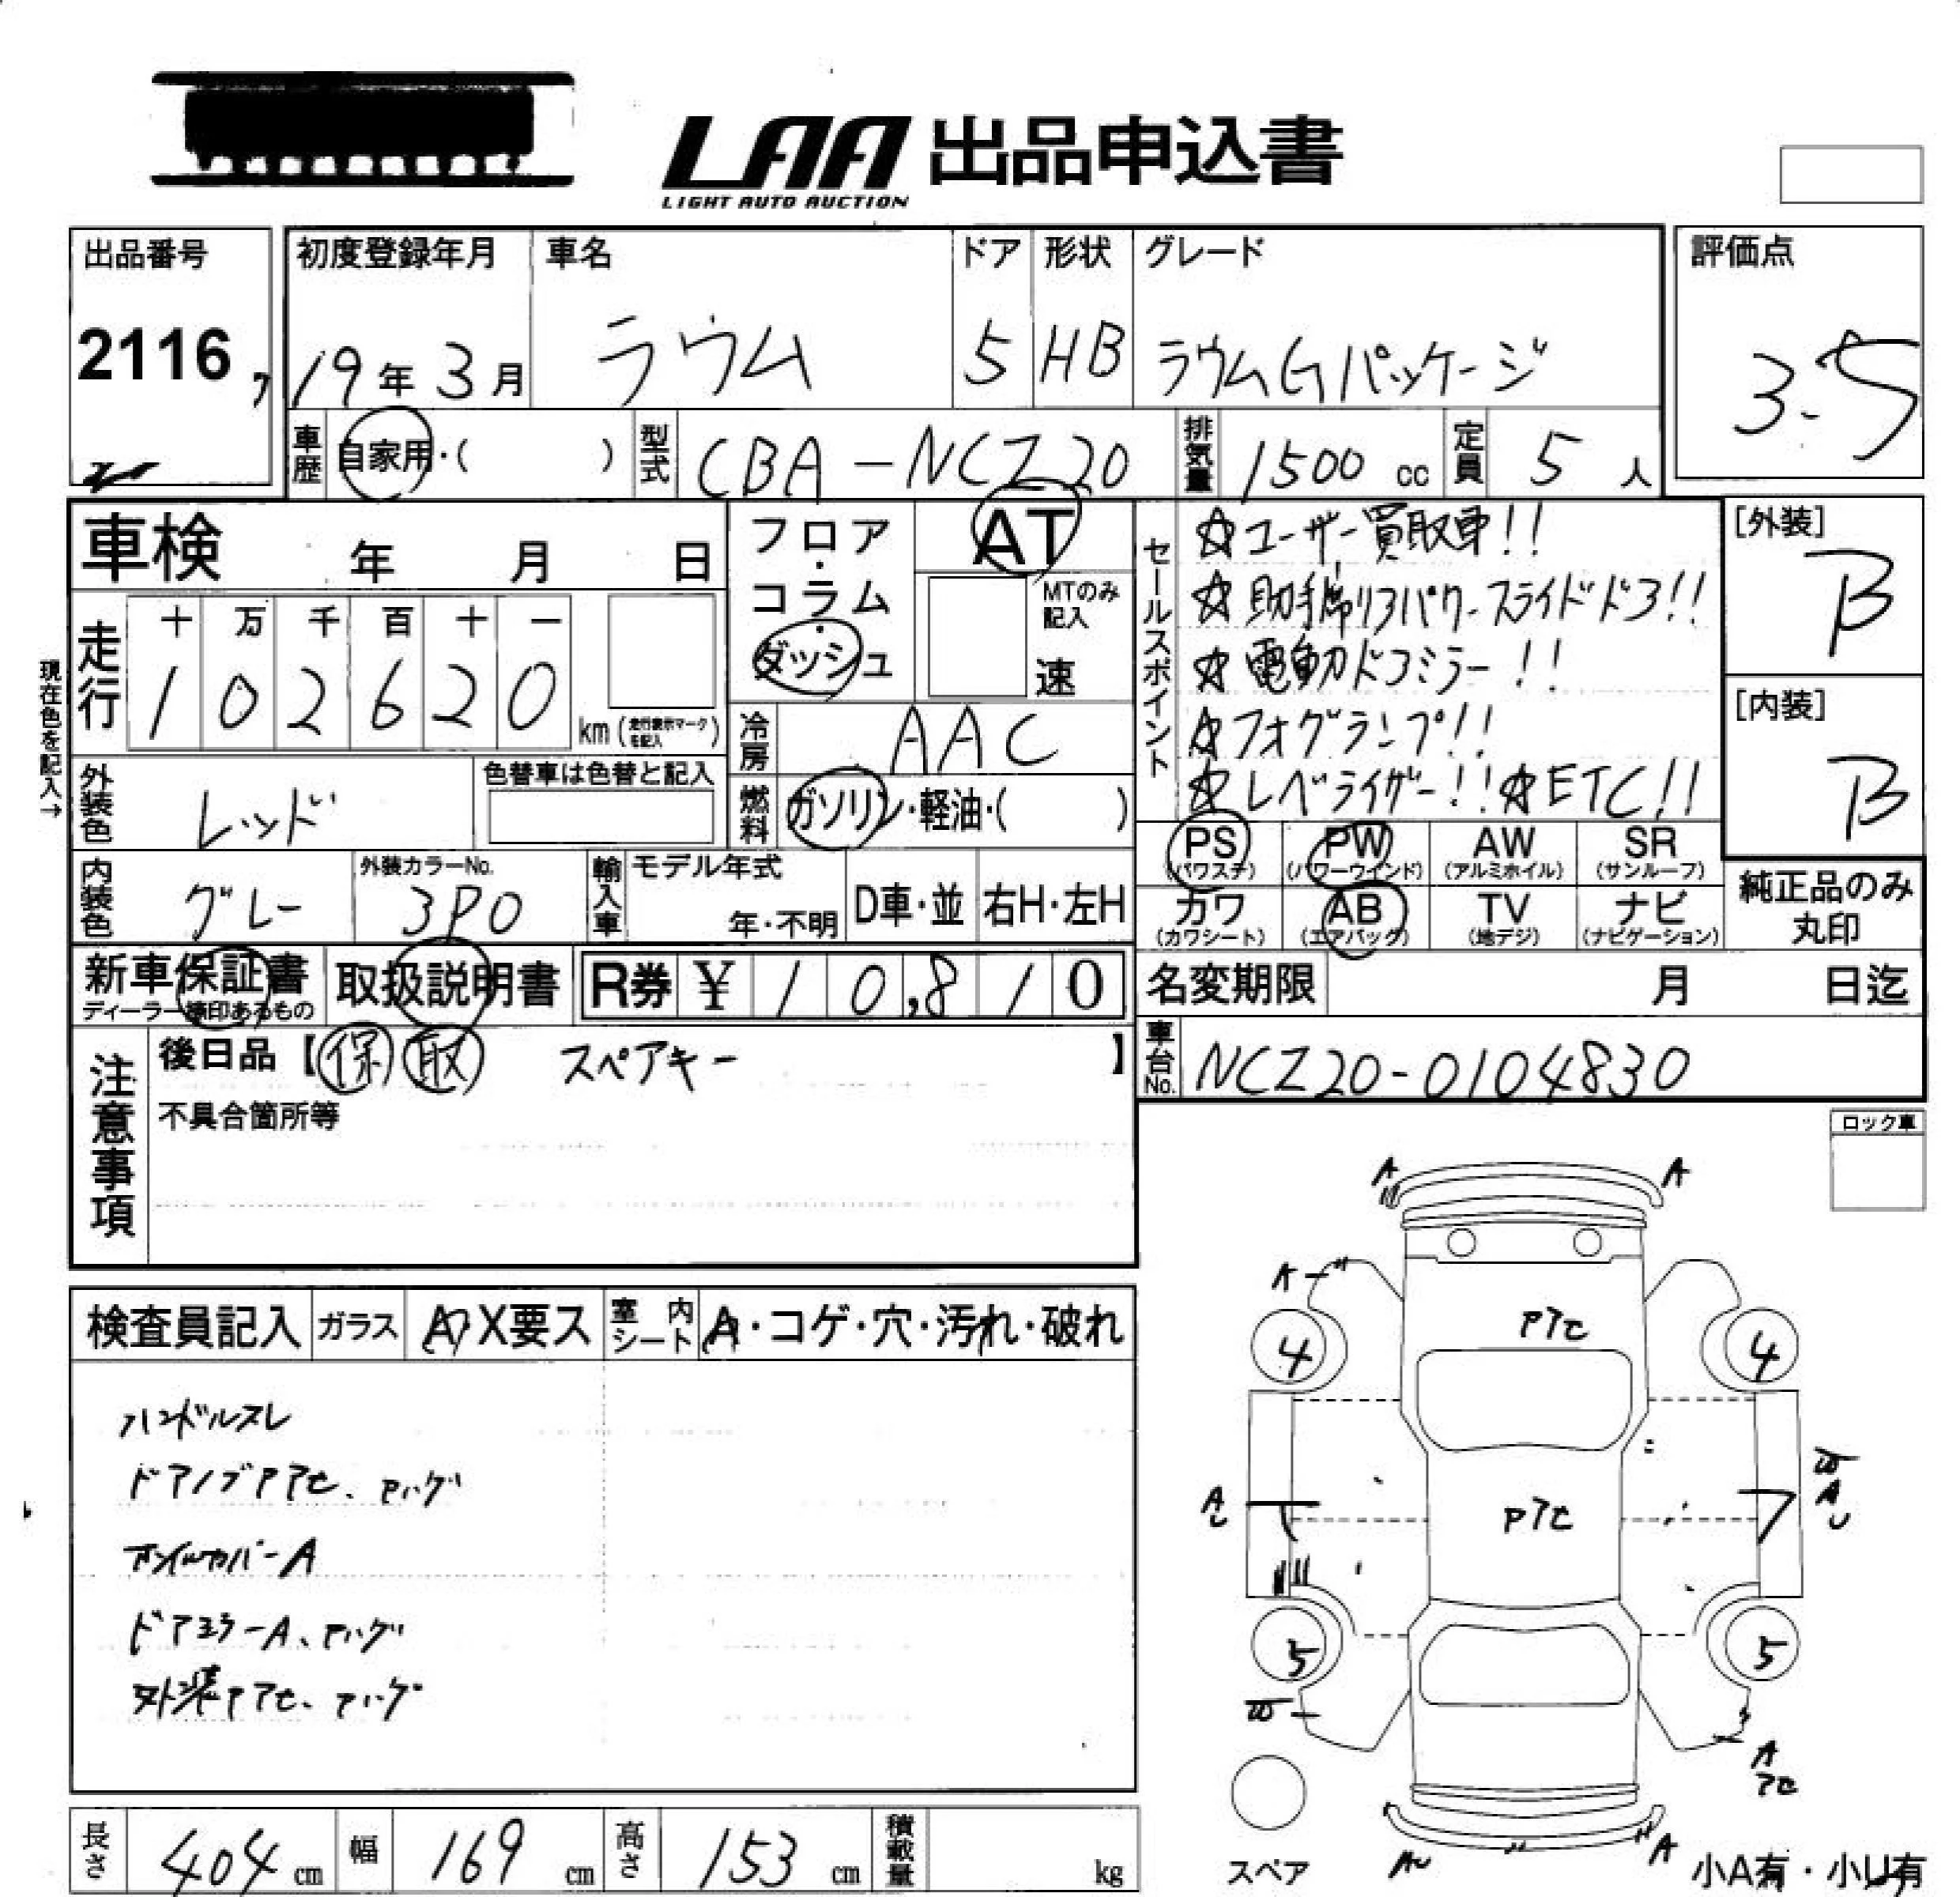 LAA 出品申込書
LIGHT AUTO AUCTION
出品番号
2116
初度登録年月 車名 ドア 形状 グレード
19年 3月 ラウム 5 HB ラウムGパッケージ
評価点
3.5
車歴 自家用・( ) 型式 CBA-NCZ20 排気量 1500 cc 定員 5 人
車検 年 月 日
フロア・コラム・ダッシュ
AT
MTのみ記入
速
走行 十 万 千 百 十 一
1 0 2 6 2 0 km (走行表示マークを記入)
現在色を記入→
冷房 AAC
外装色 レッド 色替車は色替と記入
燃料 ガソリン・軽油・( )
内装色 グレー 外装カラーNo. 3P0
輸入車 モデル年式 年・不明 D車・並 右H・左H
セールスポイント
☆ユーザー買取車!!
☆助手席リヨパワースライドドヨ!!
☆電動ドヨミラー!!
☆フォグランプ!!
☆レベライザー!! ☆ETC!!
[外装]
B
[内装]
B
PS (パワステ) PW (パワーウインド) AW (アルミホイル) SR (サンルーフ)
カワ (カワシート) AB (エアバッグ) TV (地デジ) ナビ (ナビゲーション)
純正品のみ丸印
新車保証書 取扱説明書 R券 ¥ 10,810
ディーラー捺印あるもの
名変期限 月 日迄
車台No. NCZ20-0104830
注意事項
後日品【保 取 スペアキー 】
不具合箇所等
ロック車
検査員記入 ガラス A X要ス 室内シート A・コゲ・穴・汚れ・破れ
ハンドルスレ
ドアノブアアセ、アハゲ
ホイルカバーA
ドアミラーA、アハゲ
外装アアセ、アハゲ
A A
A
Pアセ
4 4
A
Pアセ
A
5 5
A
アセ
A
スペア 小A有・小U有
長さ 404 cm 幅 169 cm 高さ 153 cm 積載量 kg